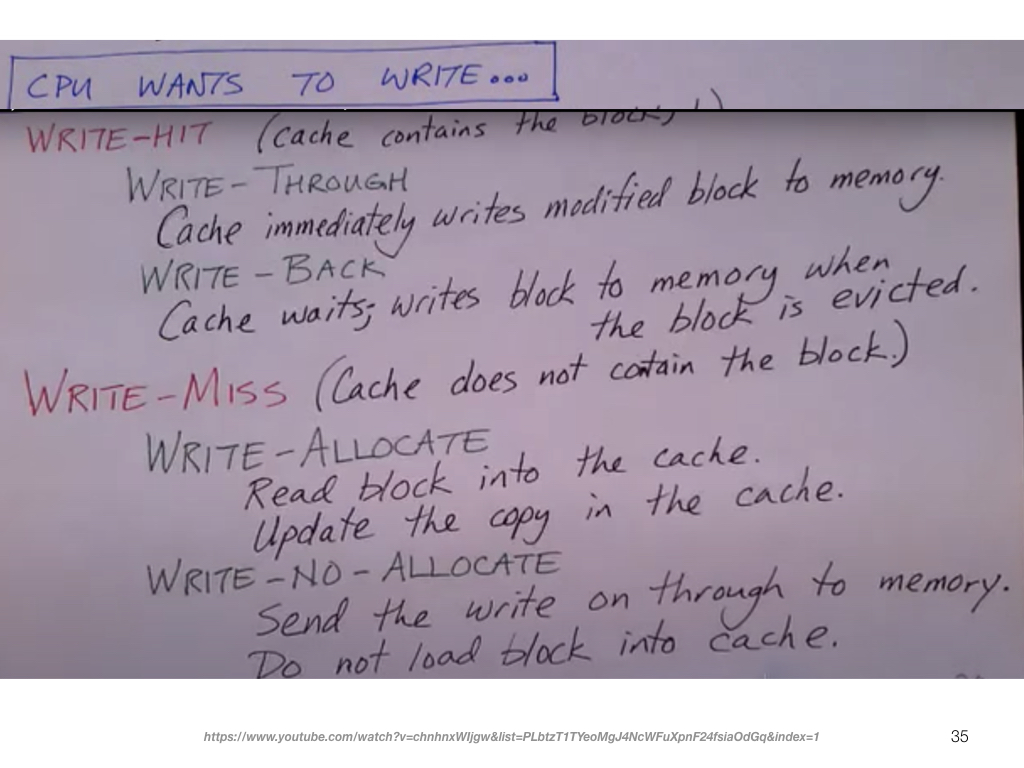 CPU WANTS TO WRITE...
WRITE-HIT (Cache contains the block!)
WRITE-THROUGH
Cache immediately writes modified block to memory.
WRITE-BACK
Cache waits; writes block to memory when
the block is evicted.
WRITE-MISS (Cache does not cotain the block.)
WRITE-ALLOCATE
Read block into the cache.
Update the copy in the cache.
WRITE-NO-ALLOCATE
Send the write on through to memory.
Do not load block into cache.
https://www.youtube.com/watch?v=chnhnxWIjgw&list=PLbtzT1TYeoMgJ4NcWFuXpnF24fsiaOdGq&index=1
35